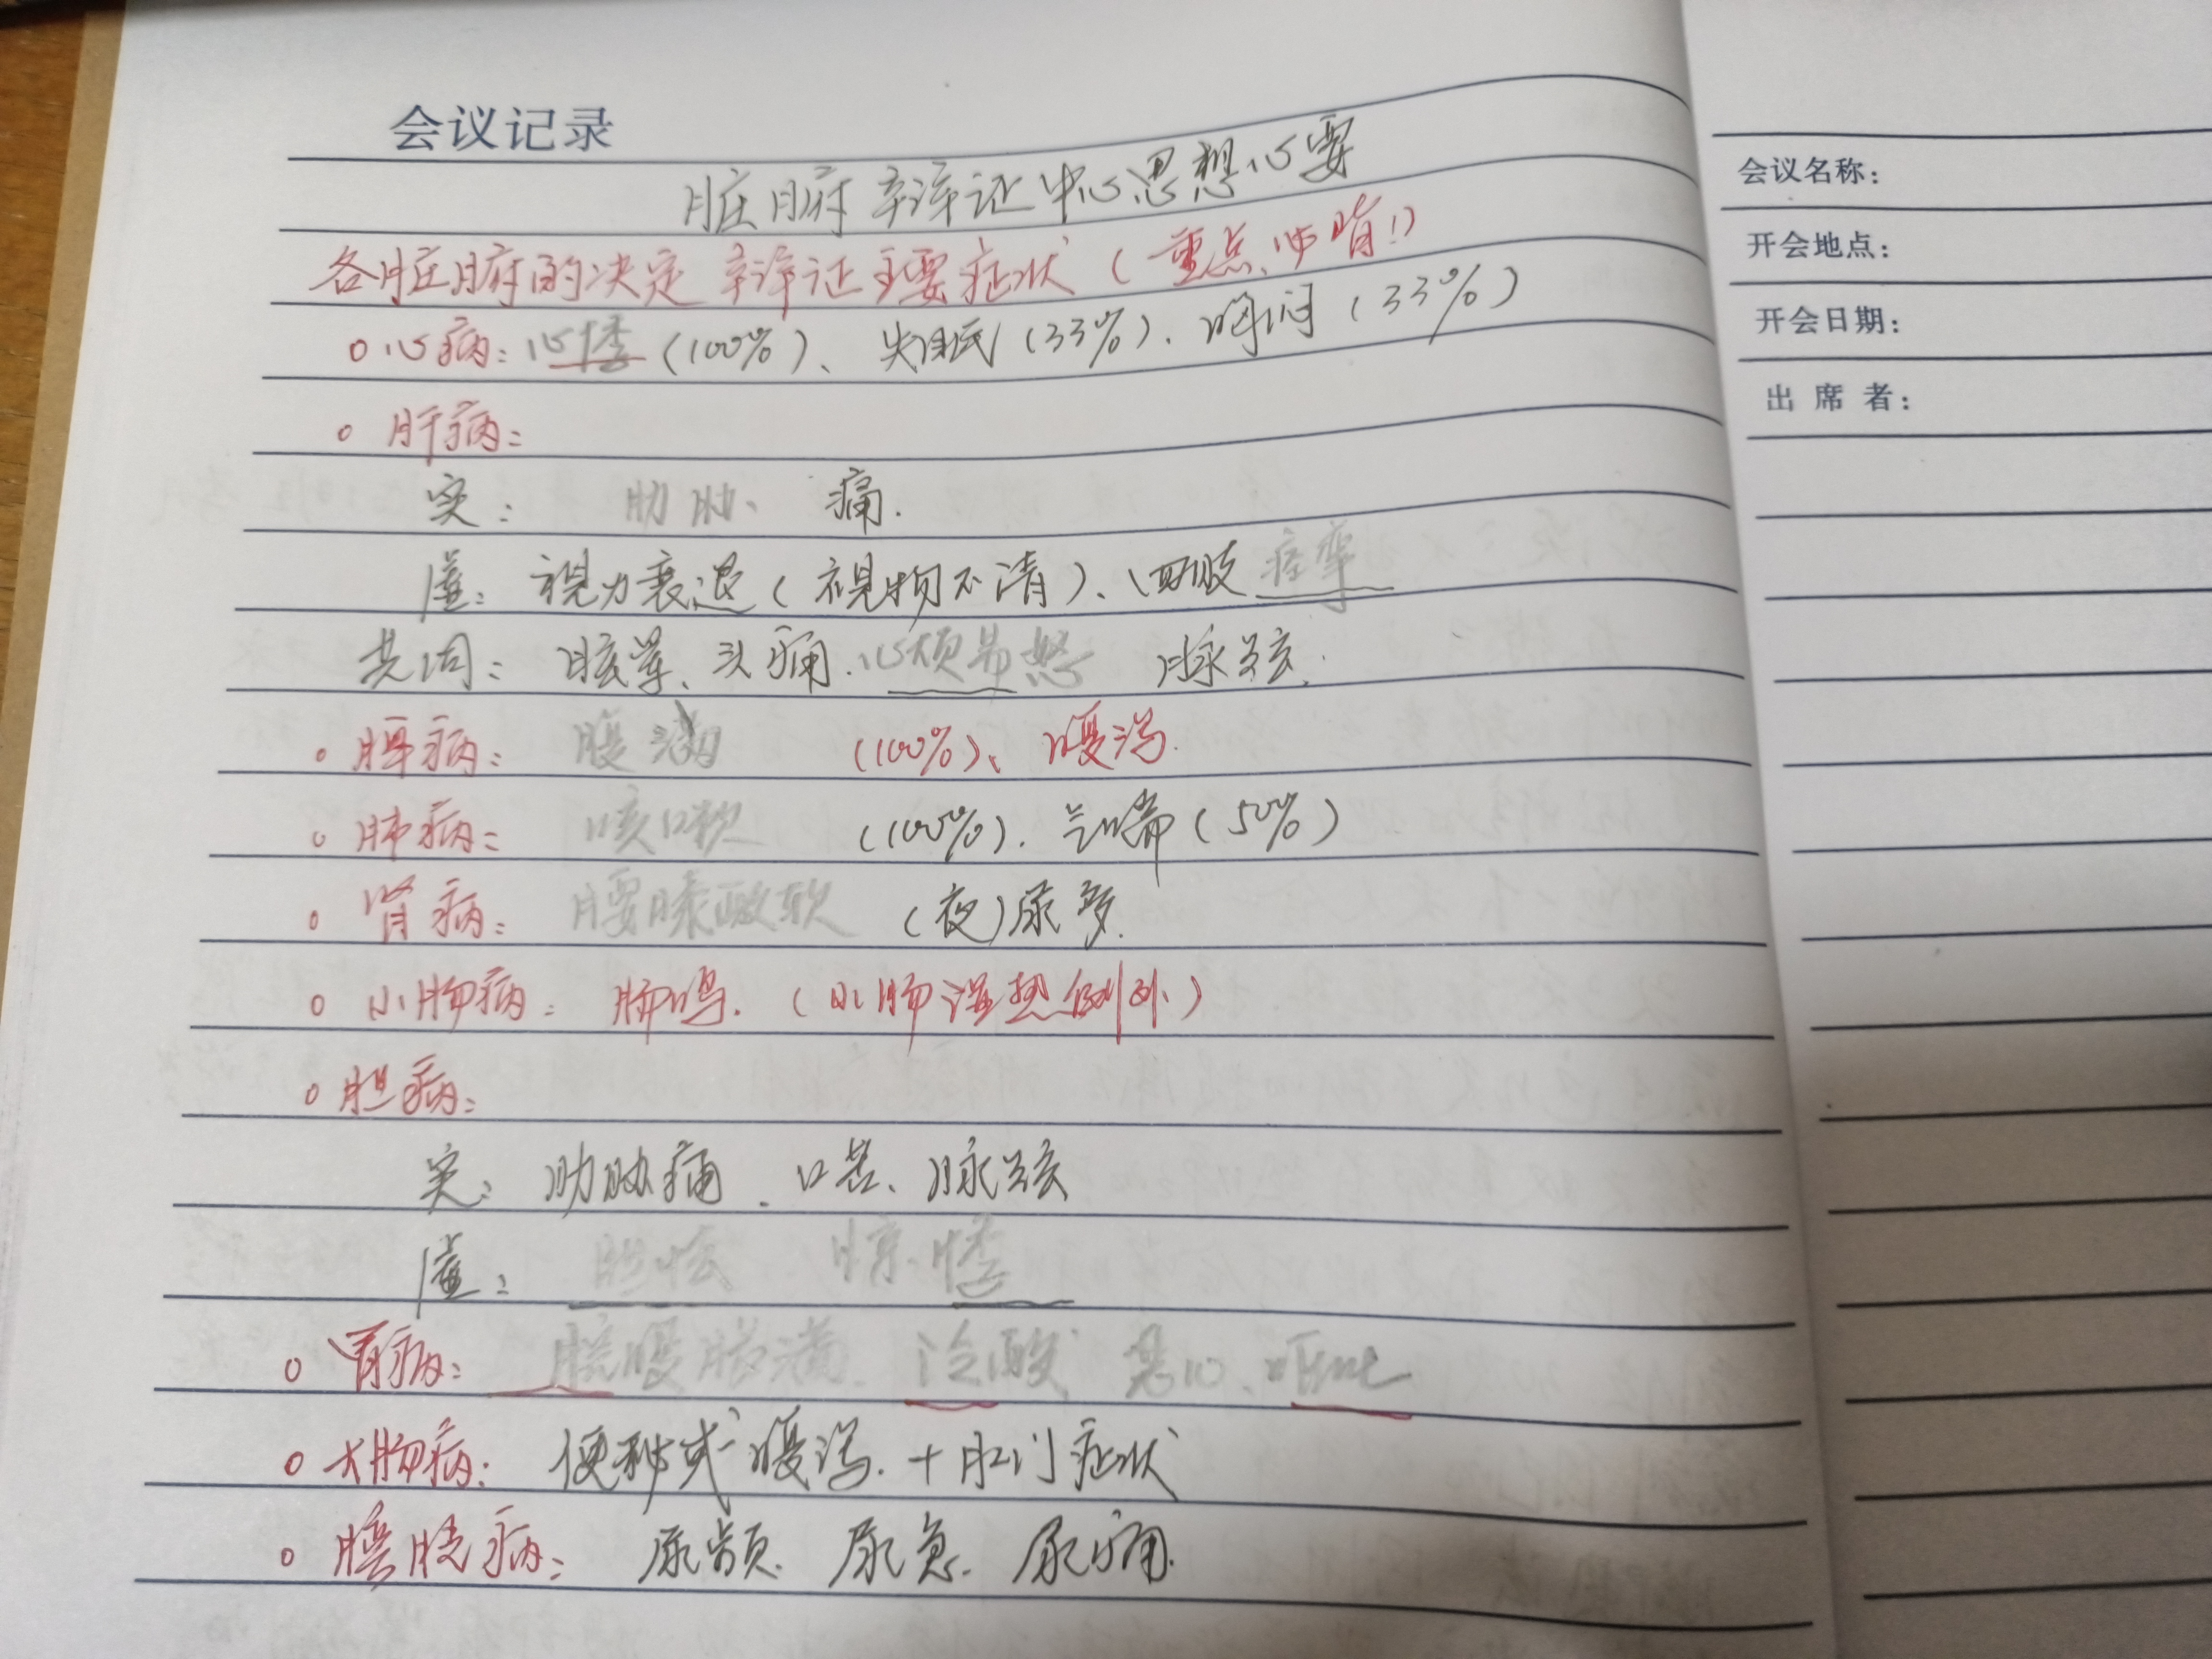 会议记录
脏腑辛辛证中心思想心要
各脏腑的决定辨证主要症状（重点、必背！）
心病：心悸（100%）、失眠（33%）、胸闷（33%）
肝病：
实： 肋胁、 痛.
虚：视力衰退（视物不清）、四肢痉挛
共同：眩晕、头痛.心烦易怒 脉弦.
脾病： 腹满 （100%）、腹泻.
肺病： 咳嗽 （100%）. 气喘（50%）
肾病： 腰膝酸软 （夜）尿多.
小肠病：肠鸣.（小肠湿热例外）
胆病：
实：肋胁痛、口苦、脉弦
虚： 胆怯 惊悸
胃病： 脘腹胀满. 泛酸 恶心、呕吐
大肠病：便秘或腹泻.+肛门症状
膀胱病： 尿频. 尿急. 尿痛.
会议名称：
开会地点：
开会日期：
出 席 者：